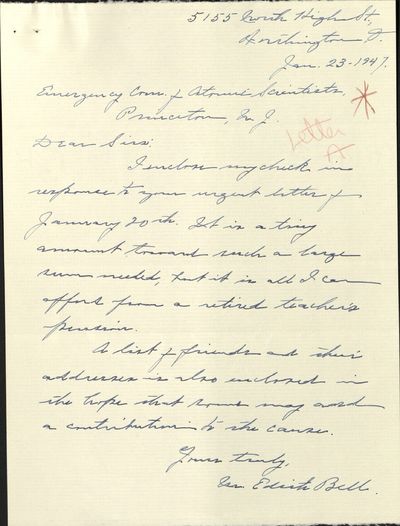 5155 North High St.,
Worthington O.
Jan. 23-1947.
Emergency Com. of Atomic Scientists,
Princeton, N.J.
Letter
A
Dear Sirs:
I enclose my check in
response to your urgent letter of
January 20th. It is a tiny
amount toward such a large
sum needed, but it is all I can
afford from a retired teacher's
pension.
A list of friends and their
addresses is also enclosed in
the hope that some may add
a contribution to the cause.
Yours truly,
Edith Bell.